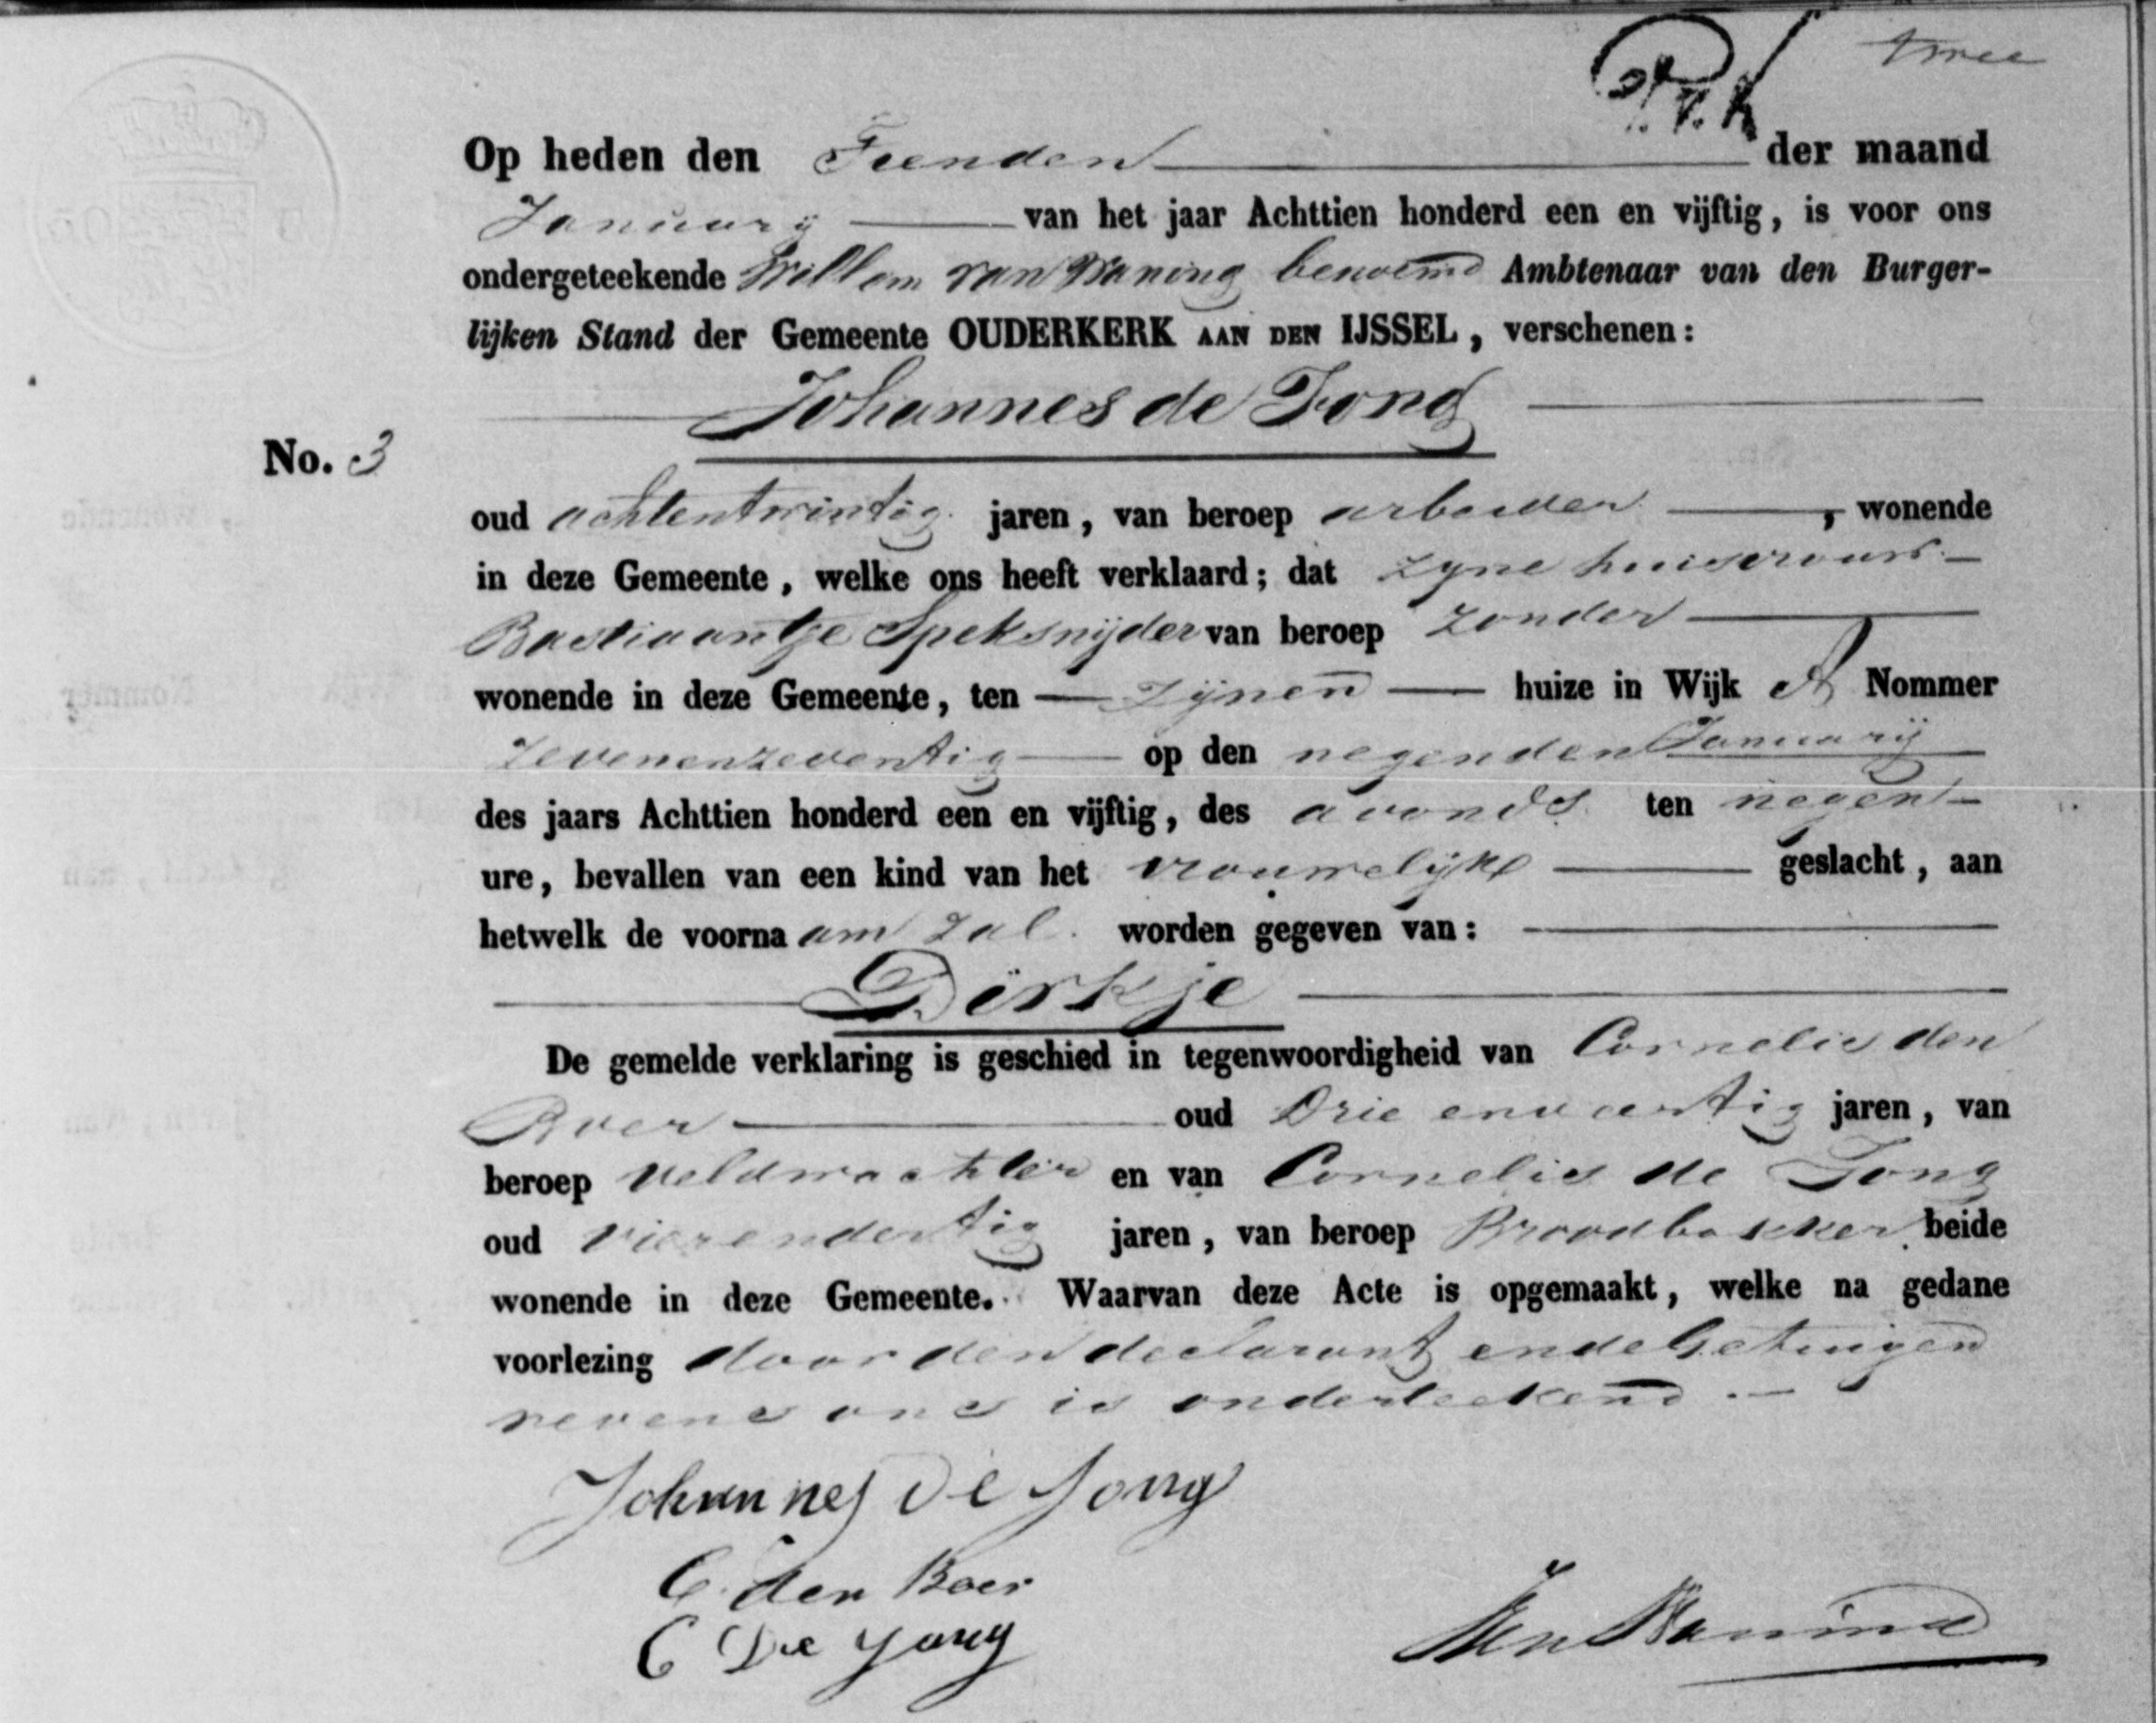 twee
Op heden den Tienden der maand
Januarij van het jaar Achttien honderd een en vijftig, is voor ons
ondergeteekende Willem van Waning benoemd Ambtenaar van den Burger-
lijken Stand der Gemeente OUDERKERK AAN DEN IJSSEL, verschenen:
Johannes de Jong
No. 3
oud achtentwintig jaren, van beroep arbeider, wonende
in deze Gemeente, welke ons heeft verklaard; dat zyne huisvrouw
Bastiaantje Speksnijder van beroep zonder
wonende in deze Gemeente, ten zijnen huize in Wijk A Nommer
zevenenzeventig op den negenden Januarij
des jaars Achttien honderd een en vijftig, des avonds ten negen
ure, bevallen van een kind van het vrouwelijke geslacht, aan
hetwelk de voornaam zal worden gegeven van:
Dirkje
De gemelde verklaring is geschied in tegenwoordigheid van Cornelis den
Boer oud Drie enveertig jaren, van
beroep veldwachter en van Cornelis de Jong
oud vierendertig jaren, van beroep Broodbakker beide
wonende in deze Gemeente. Waarvan deze Acte is opgemaakt, welke na gedane
voorlezing door den declarant en de Getuigen
nevens ons is onderteekend.
Johannes de Jong
C. den Boer
C De Jong
Waning